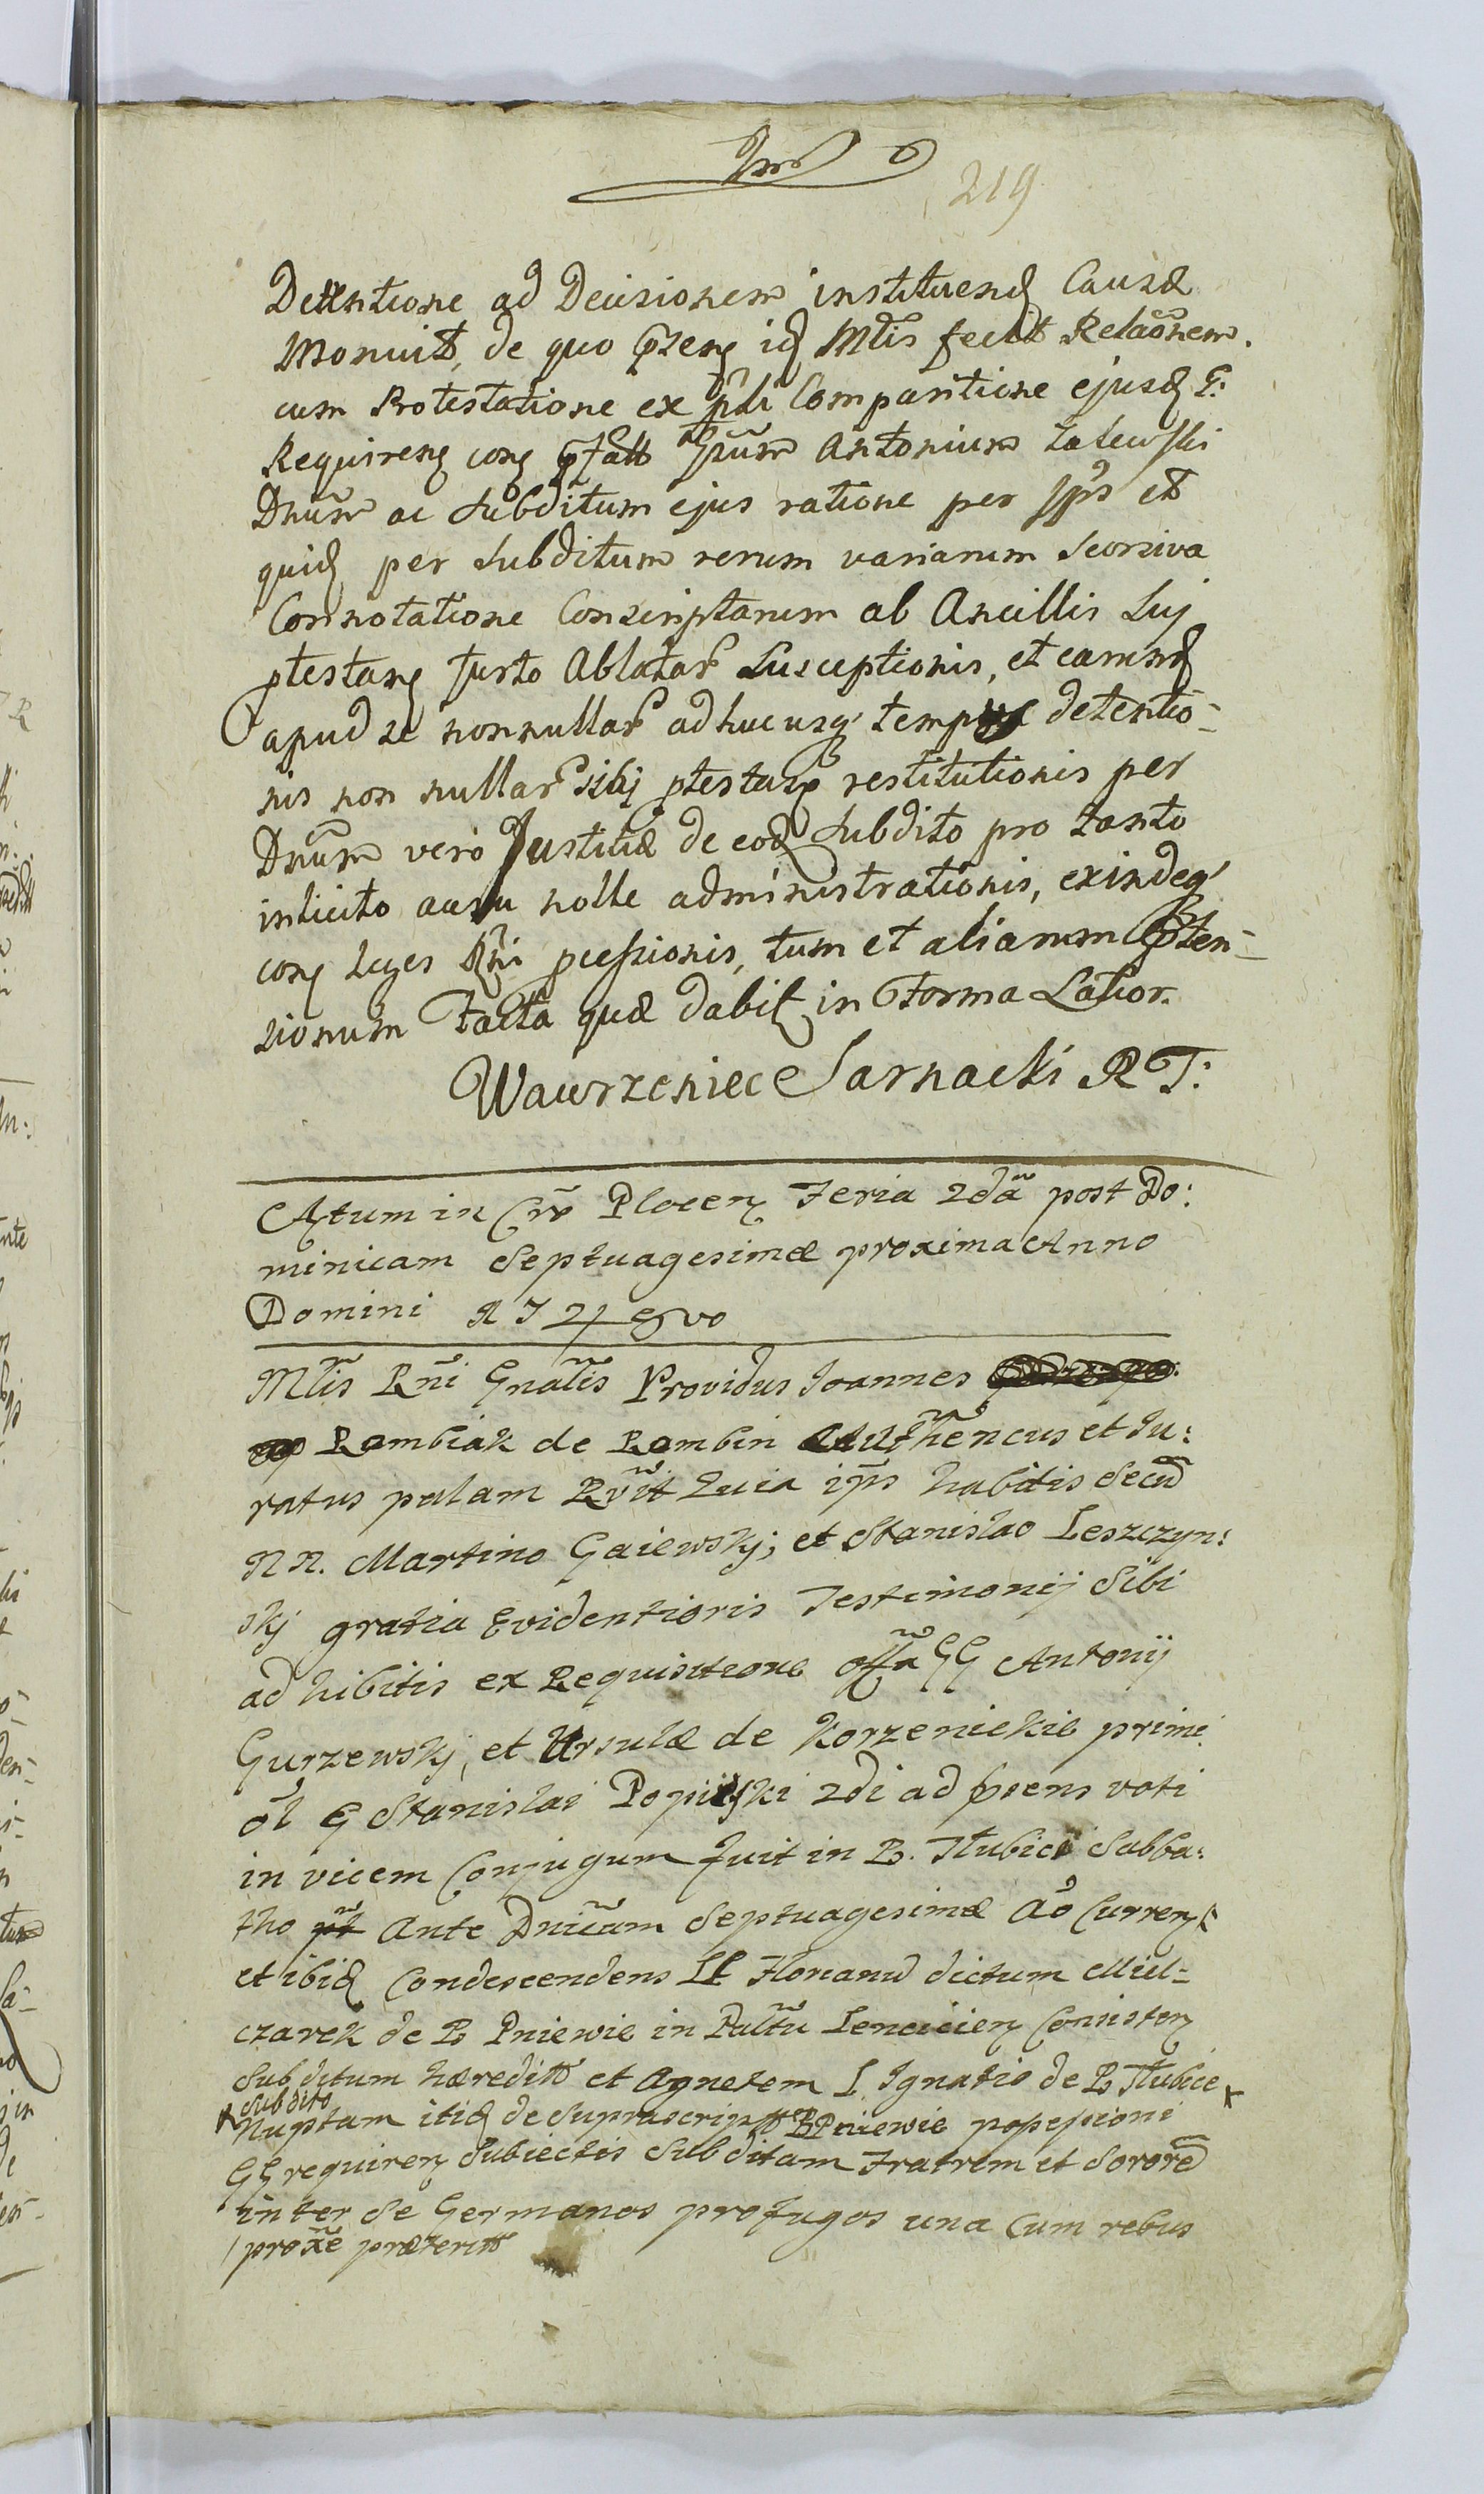 219
Detentione ad Decisionem instituend Causæ
Monuit, de quo id Mtis fecit Relaõnem.
cum Protestatione ex pdi Comparitione ejusd G:
Requireng cong Antonium Zalewski
Dnũm ac Subditum ejus ratione per et
quid per Subditum rerum variarum Seorsiva
Connotatione Conscriptarum ab Ancillis Suj
ptestang furto Ablatar Susceptionis, et earumd
apud se nonnullar adhucusq tempus detentio-
nis non nullar sibj restitutionis per
Dnũm vero Justitiæ de eod Subdito pro tanto
inlicito ausu nolle administrationis, exindeq
cong Leges Rni pcessionis, tum et aliarum pten-
sionum facta quæ dabit in Forma Latior.
Wawrzeniec Sarnacki RT:
Actum in Cro Plocen Feria 2dã post Do:
minicam Septuagesimæ proxima Anno
Domini
Mtis Rñi Gnãlis Providus Ioannes
Rembiak de Rembin Authẽncus et Iu:
ratus palam Rvit Quia ips habitis Secũ
NN. Martino Gaiewskj; et Stanislao Leszczyn:
skj gratia Evidentioris Testimonij Sibi
ad hibitis ex Requisitione offa GG Antonij
Gurzewskj, et Ursulæ de Korzeniekie primi
ol G Stanislai Popiski 2di ad psens voti
in vicem Conjugum fuit in B. Tłubice Sabba:
tho Ante Dnicam Septuagesimæ Aõ Curren
et ibid Condescendens Ll Florianũ dictum Miel-
czarek de B Pniewie in Palttũ Lencicien Consisten
Subditum hæreditt et Agnetem L Ignatio de B Tłubice
Subdito
Nuptam itid de Suprascriptt B Pniewie possessioni
GG requiren Subiectis Subditam Fratrem et Sororẽ
inter Se Germanos profugos una Cum rebus
proxe præteritt